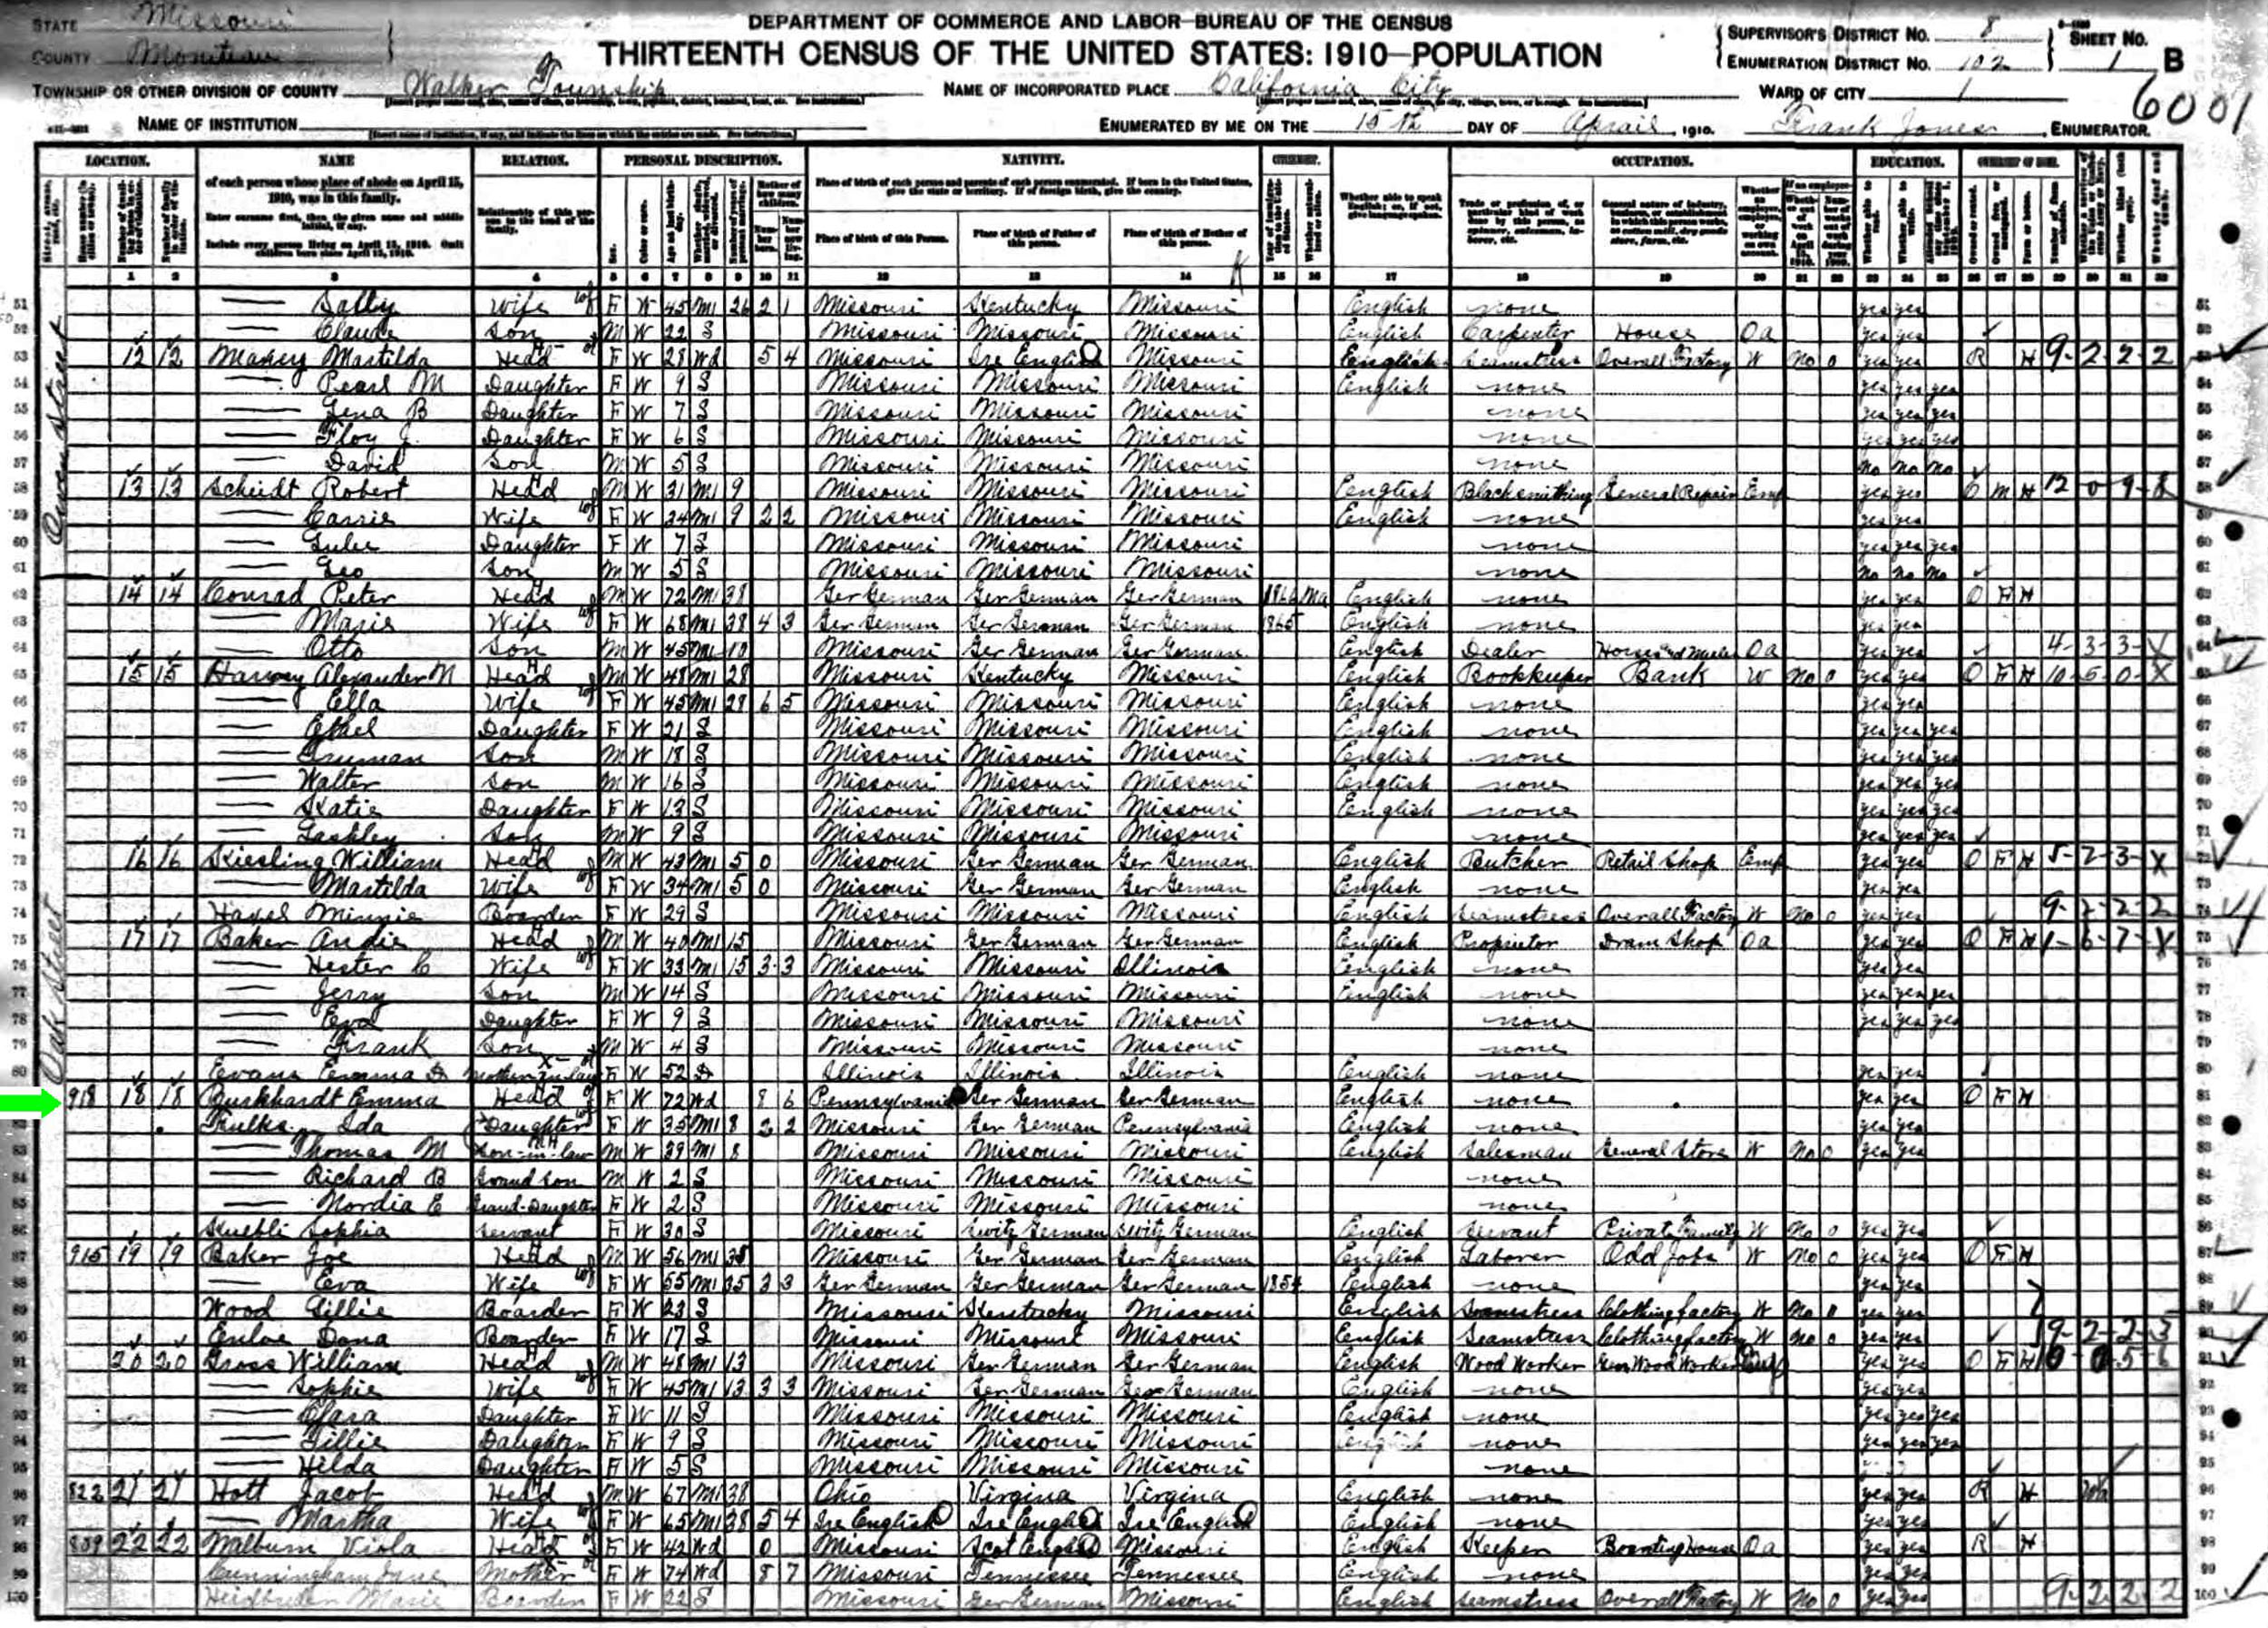 STATE Missouri
COUNTY Moniteau
DEPARTMENT OF COMMERCE AND LABOR—BUREAU OF THE CENSUS
THIRTEENTH CENSUS OF THE UNITED STATES: 1910—POPULATION
SUPERVISOR'S DISTRICT NO. 8
ENUMERATION DISTRICT NO. 102
SHEET NO. 1 B
TOWNSHIP OR OTHER DIVISION OF COUNTY Walker Township
NAME OF INCORPORATED PLACE California City
WARD OF CITY 1
6001
NAME OF INSTITUTION
ENUMERATED BY ME ON THE 15th DAY OF Aprail, 1910. Frank Jones, ENUMERATOR.
LOCATION. NAME RELATION. PERSONAL DESCRIPTION. NATIVITY. CITIZENSHIP. OCCUPATION. EDUCATION. OWNERSHIP OF HOME.
of each person whose place of abode on April 15, 1910, was in this family.
Enter surname first, then the given name and middle initial, if any.
Include every person living on April 15, 1910. Omit children born since April 15, 1910.
Relationship of this person to the head of the family.
Place of birth of each person and parents of each person enumerated. If born in the United States, give the state or territory. If of foreign birth, give the country.
Place of birth of this Person. Place of birth of Father of this person. Place of birth of Mother of this person.
Whether able to speak English; or, if not, give language spoken.
1 2 3 4 5 6 7 8 9 10 11 12 13 14 15 16 17 18 19 20 21 22 23 24 25 26 27 28 29 30 31 32
51 — Sally Wife F W 45 M1 26 2 1 Missouri Kentucky Missouri English none yes yes
52 — Claude Son M W 22 S Missouri Missouri Missouri English Carpenter House Oa yes yes
53 12 12 Martilda Head F W 28 Wd 5 4 Missouri Ire English Missouri English Seamstress Overall Factory W No 0 yes yes R H 9-2-2-2
54 — Pearl M Daughter F W 9 S Missouri Missouri Missouri English none yes yes yes
55 — Lena B Daughter F W 7 S Missouri Missouri Missouri none yes yes yes
56 — Floy J. Daughter F W 6 S Missouri Missouri Missouri none yes yes yes
57 — David Son M W 5 S Missouri Missouri Missouri none No No No
58 13 13 Scheidt Robert Head M W 31 M1 9 Missouri Missouri Missouri English Blacksmithing General Repair Emp yes yes O M H 12-0-9-8
59 — Carrie Wife F W 34 M1 9 2 2 Missouri Missouri Missouri English none yes yes
60 — Daughter F W 7 S Missouri Missouri Missouri none yes yes yes
61 — Geo Son M W 5 S Missouri Missouri Missouri none No No No
62 14 14 Conrad Peter Head M W 72 M1 38 Ger German Ger German Ger German 1866 Na English none yes yes O F H
63 — Marie Wife F W 68 M1 38 4 3 Ger German Ger German Ger German 1865 English none yes yes
64 — Otto Son M W 45 M1 10 Missouri Ger German Ger German English Dealer Horses and Mules Oa yes yes 4-3-3-X
65 15 15 Harvey Alexander M Head M W 48 M1 28 Missouri Kentucky Missouri English Bookkeeper Bank W No 0 yes yes O F H 10-5-0-X
66 — Ella Wife F W 45 M1 28 6 5 Missouri Missouri Missouri English none yes yes
67 — Ethel Daughter F W 21 S Missouri Missouri Missouri English none yes yes yes
68 — Truman Son M W 18 S Missouri Missouri Missouri English none yes yes yes
69 — Walter Son M W 16 S Missouri Missouri Missouri English none yes yes yes
70 — Katie Daughter F W 13 S Missouri Missouri Missouri English none yes yes yes
71 — Lashley Son M W 9 S Missouri Missouri Missouri none yes yes yes
72 16 16 Kiesling William Head M W 43 M1 5 0 Missouri Ger German Ger German English Butcher Retail Shop Emp yes yes O F H 5-2-3-X
73 — Martilda Wife F W 34 M1 5 0 Missouri Ger German Ger German English none yes yes
74 Minnie Boarder F W 29 S Missouri Missouri Missouri English Seamstress Overall Factory W No 0 yes yes 9-2-2-2
75 17 17 Baker Andie Head M W 40 M1 15 Missouri Ger German Ger German English Proprietor Dram Shop Oa yes yes O F H 1-6-7-X
76 — Hester C Wife F W 33 M1 15 3 3 Missouri Missouri Illinois English none yes yes
77 — Jerry Son M W 14 S Missouri Missouri Missouri English none yes yes yes
78 — Eva Daughter F W 9 S Missouri Missouri Missouri none yes yes yes
79 — Frank Son M W 4 S Missouri Missouri Missouri none
80 Evans Emma D Mother-in-law F W 52 D Illinois Illinois Illinois English none yes yes
81 918 18 18 Burkhardt Emma Head F W 72 Wd 8 6 Pennsylvania Ger German Ger German English none yes yes O F H
82 Fulks Ida Daughter F W 35 M1 8 2 2 Missouri Ger German Pennsylvania English none yes yes
83 — Thomas M Son-in-law M W 39 M1 8 Missouri Missouri Missouri English Salesman General Store W No 0 yes yes
84 — Richard B Grand son M W 2 S Missouri Missouri Missouri none
85 — Nordia E Grand-Daughter F W 2 S Missouri Missouri Missouri none
86 Kuebli Sophia Servant F W 30 S Missouri Switz German Switz German English Servant Private Family W No 0 yes yes
87 915 19 19 Baker Joe Head M W 56 M1 35 Missouri Ger German Ger German English Laborer Odd Jobs W No 0 yes yes O F H
88 — Eva Wife F W 55 M1 35 3 3 Ger German Ger German Ger German 1854 English none yes yes
89 Wood Lillie Boarder F W 23 S Missouri Kentucky Missouri English Seamstress Clothing factory W No 0 yes yes
90 Enloe Dona Boarder F W 17 S Missouri Missouri Missouri English Seamstress Clothing factory W No 0 yes yes 9-2-2-3
91 20 20 Gross William Head M W 48 M1 13 Missouri Ger German Ger German English Wood Worker Gen Wood Worker yes yes O F H
92 — Sophie Wife F W 45 M1 13 3 3 Missouri Ger German Ger German English none yes yes
93 — Clara Daughter F W 11 S Missouri Missouri Missouri English none yes yes yes
94 — Lillie Daughter F W 9 S Missouri Missouri Missouri English none yes yes yes
95 — Hilda Daughter F W 5 S Missouri Missouri Missouri none
96 822 21 21 Hott Jacob Head M W 67 M1 38 Ohio Virgina Virgina English none yes yes R H
97 — Martha Wife F W 65 M1 38 5 4 Ire English Ire English Ire English English none yes yes
98 809 22 22 Walburn Viola Head F W 42 Wd 0 Missouri Scot English Missouri English Keeper Boarding House Oa yes yes R H
99 Cunningham Jane Mother F W 74 Wd 8 7 Missouri Tennessee Tennessee English none yes yes
100 Marie Boarder F W 22 S Missouri Ger German Missouri English Seamstress Overall Factory W No 0 yes yes 9-2-2-2
Owen Street
Oak Street